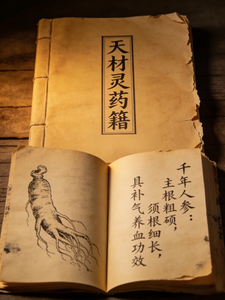 天材灵药籍
千年人参：
主根粗硕，
须根细长，
具补气养血功效